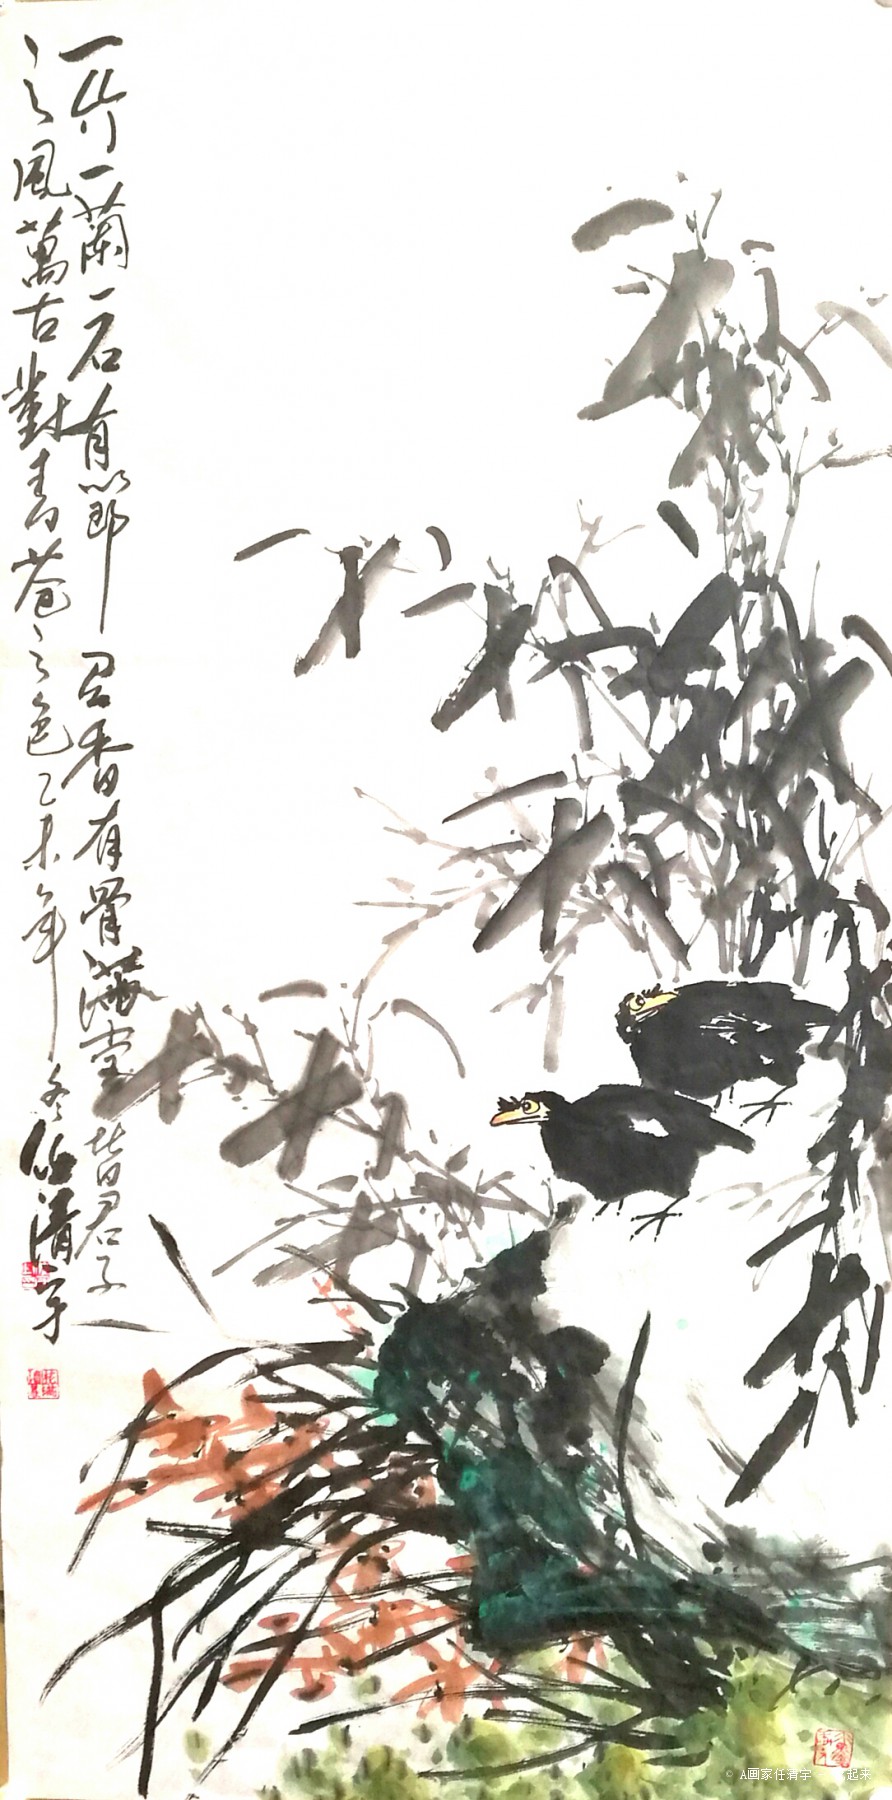 一竹一兰一石有节有香有骨满堂皆君子
之風萬古對青苍之色乙未年冬任清宇
© A画家任清宇 一 起来